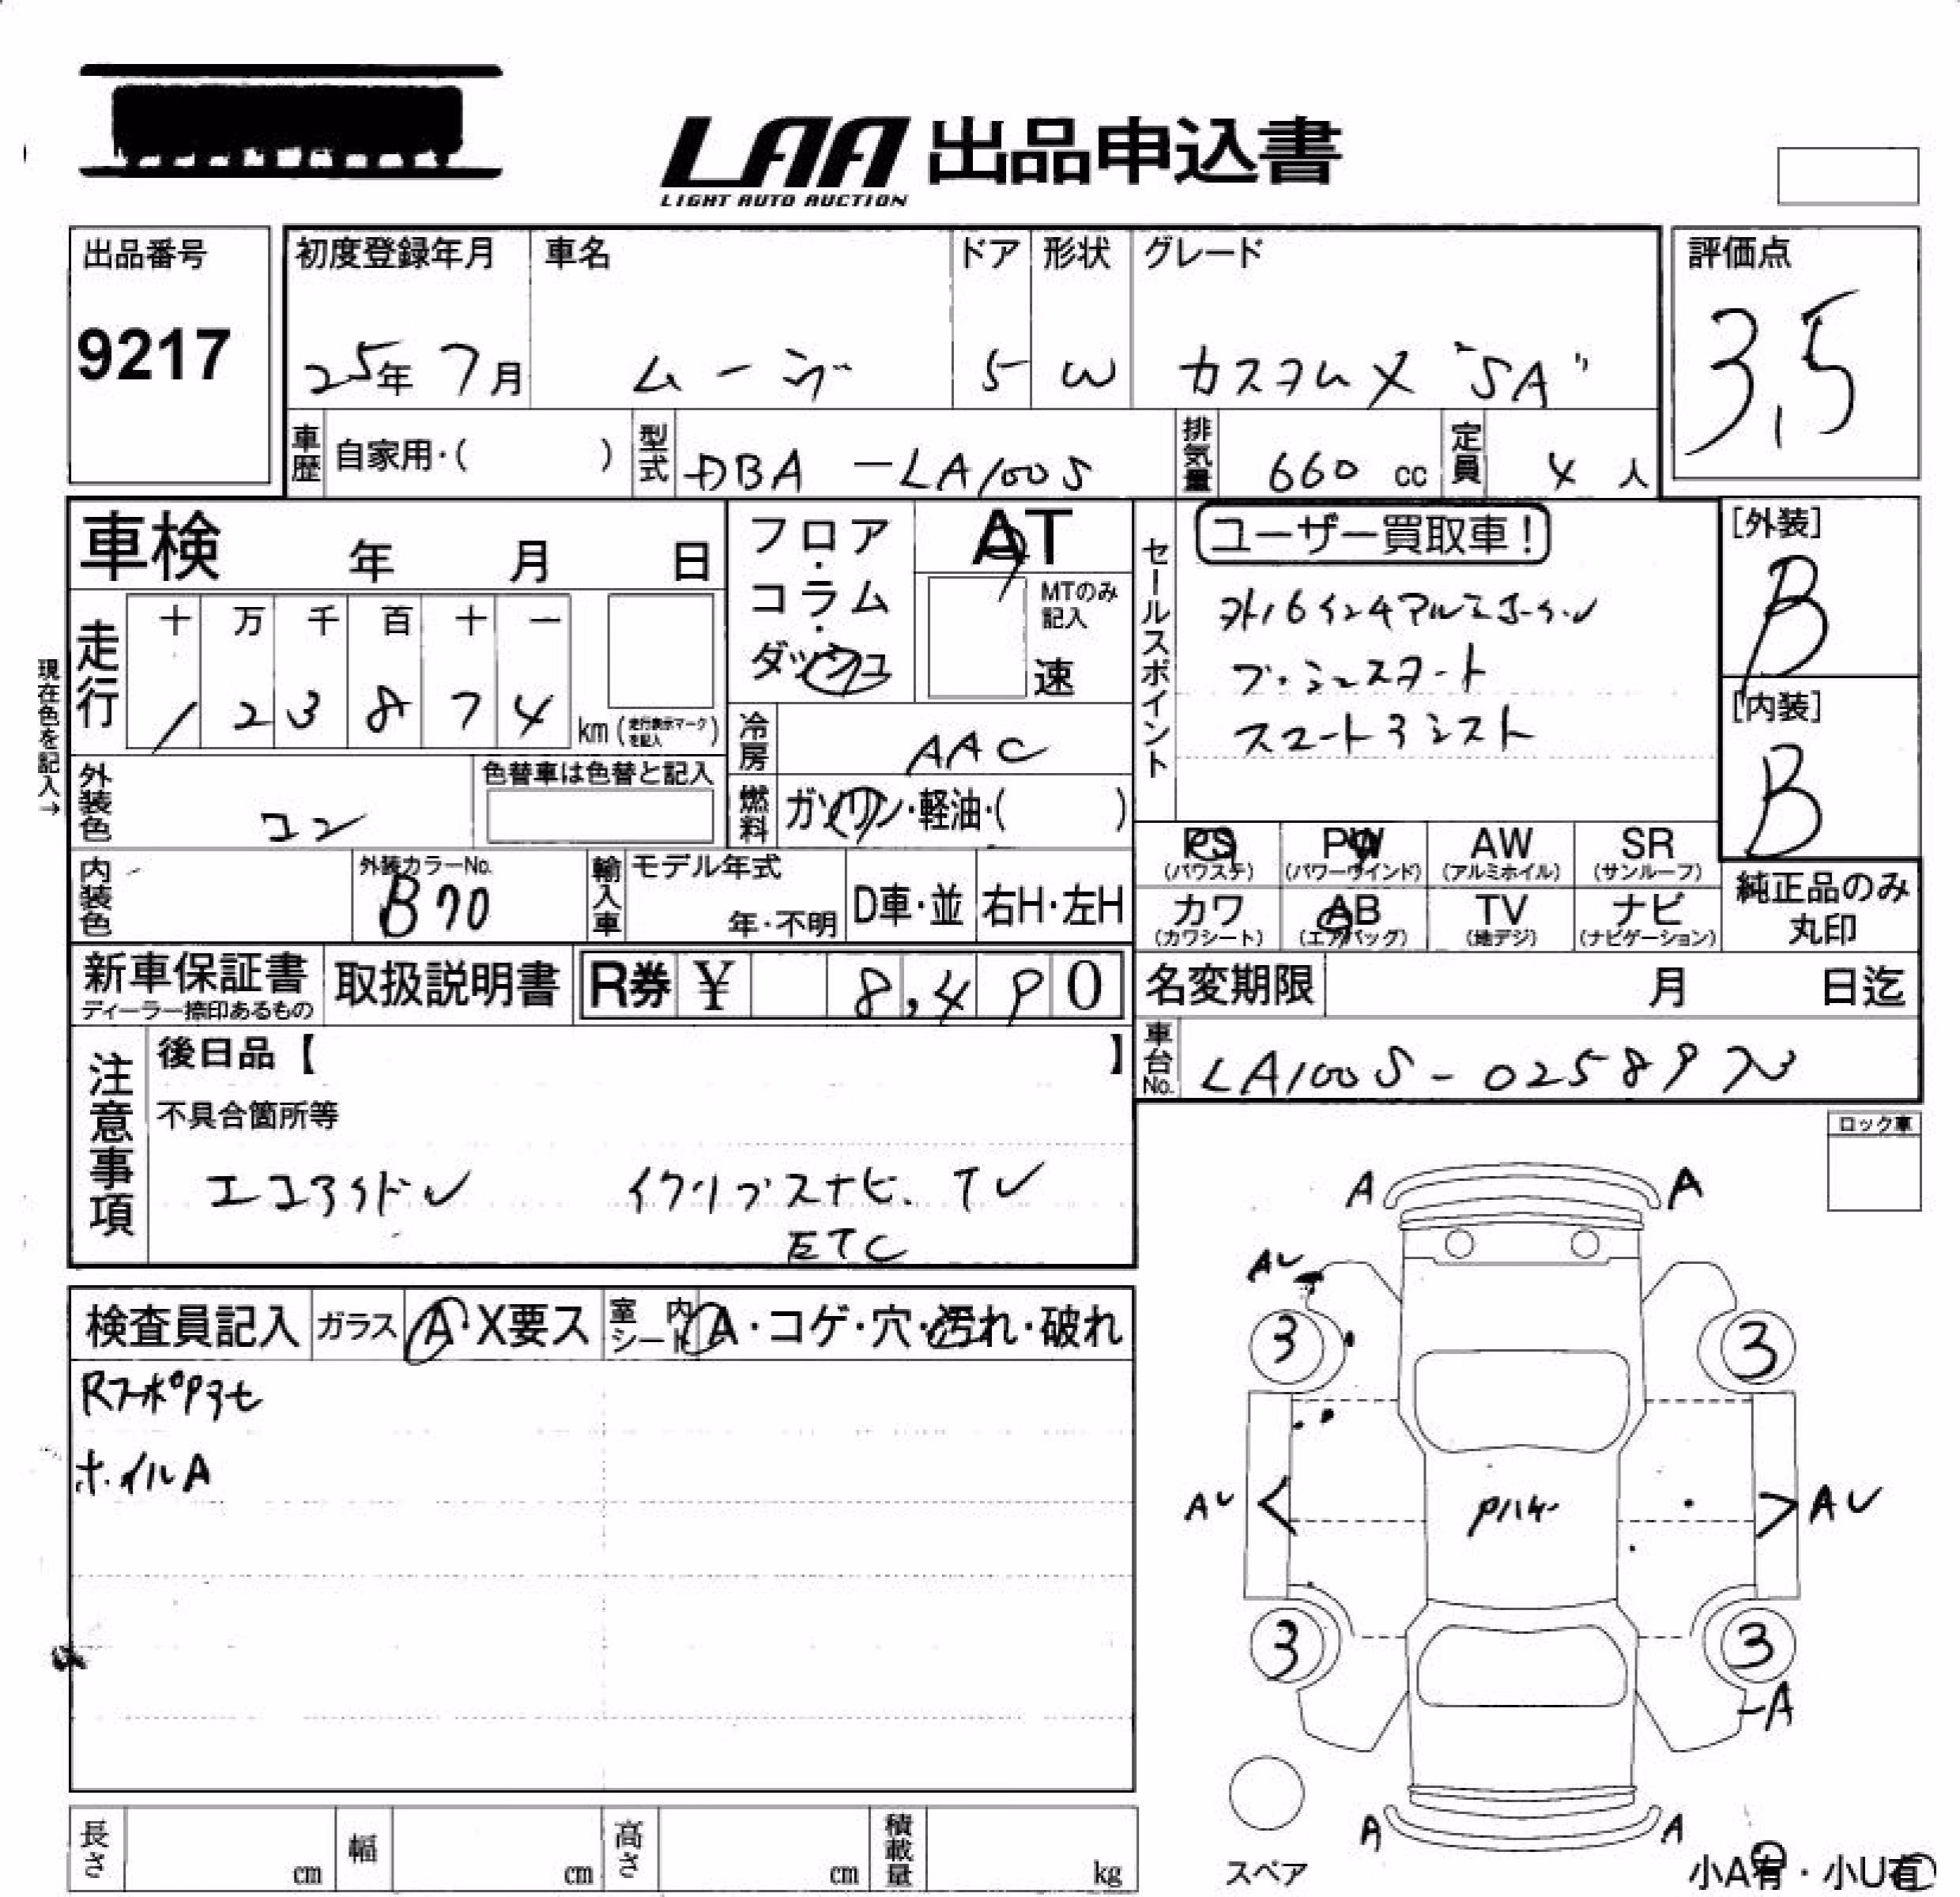 LAA 出品申込書
LIGHT AUTO AUCTION
出品番号
9217
初度登録年月
25年 7月
車名
ムーヴ
ドア
5
形状
W
グレード
カスタムX "SA"
評価点
3.5
車歴
自家用・( )
型式
DBA-LA100S
排気量
660 cc
定員
4 人
車検 年 月 日
現在色を記入→
走行
十 万 千 百 十 一
1 2 3 8 7 4 km (走行表示マークを記入)
フロア・コラム・ダッシュ
AT
MTのみ記入
速
冷房
AAC
燃料
ガソリン・軽油・( )
セールスポイント
ユーザー買取車!
外16インチアルミホイール
プッシュスタート
スマートアシスト
[外装]
B
[内装]
B
外装色
コン
色替車は色替と記入
内装色
外装カラーNo.
B70
輸入車
モデル年式
年・不明
D車・並
右H・左H
PS
(パワステ)
PW
(パワーウインド)
AW
(アルミホイル)
SR
(サンルーフ)
カワ
(カワシート)
AB
(エアバッグ)
TV
(地デジ)
ナビ
(ナビゲーション)
純正品のみ
丸印
新車保証書
ディーラー捺印あるもの
取扱説明書
R券 ¥ 8,490
名変期限 月 日迄
車台No.
LA100S-02589
注意事項
後日品【 】
不具合箇所等
エコアイドル
イクリプスナビ、TV
ETC
ロック車
検査員記入
ガラス A・X要ス
室内シート A・コゲ・穴・汚れ・破れ
Rスポアラセ
ホイルA
A
A
AU
3
3
AU
AU
3
3
A
A
A
スペア
小A有・小U有
長さ cm
幅 cm
高さ cm
積載量 kg